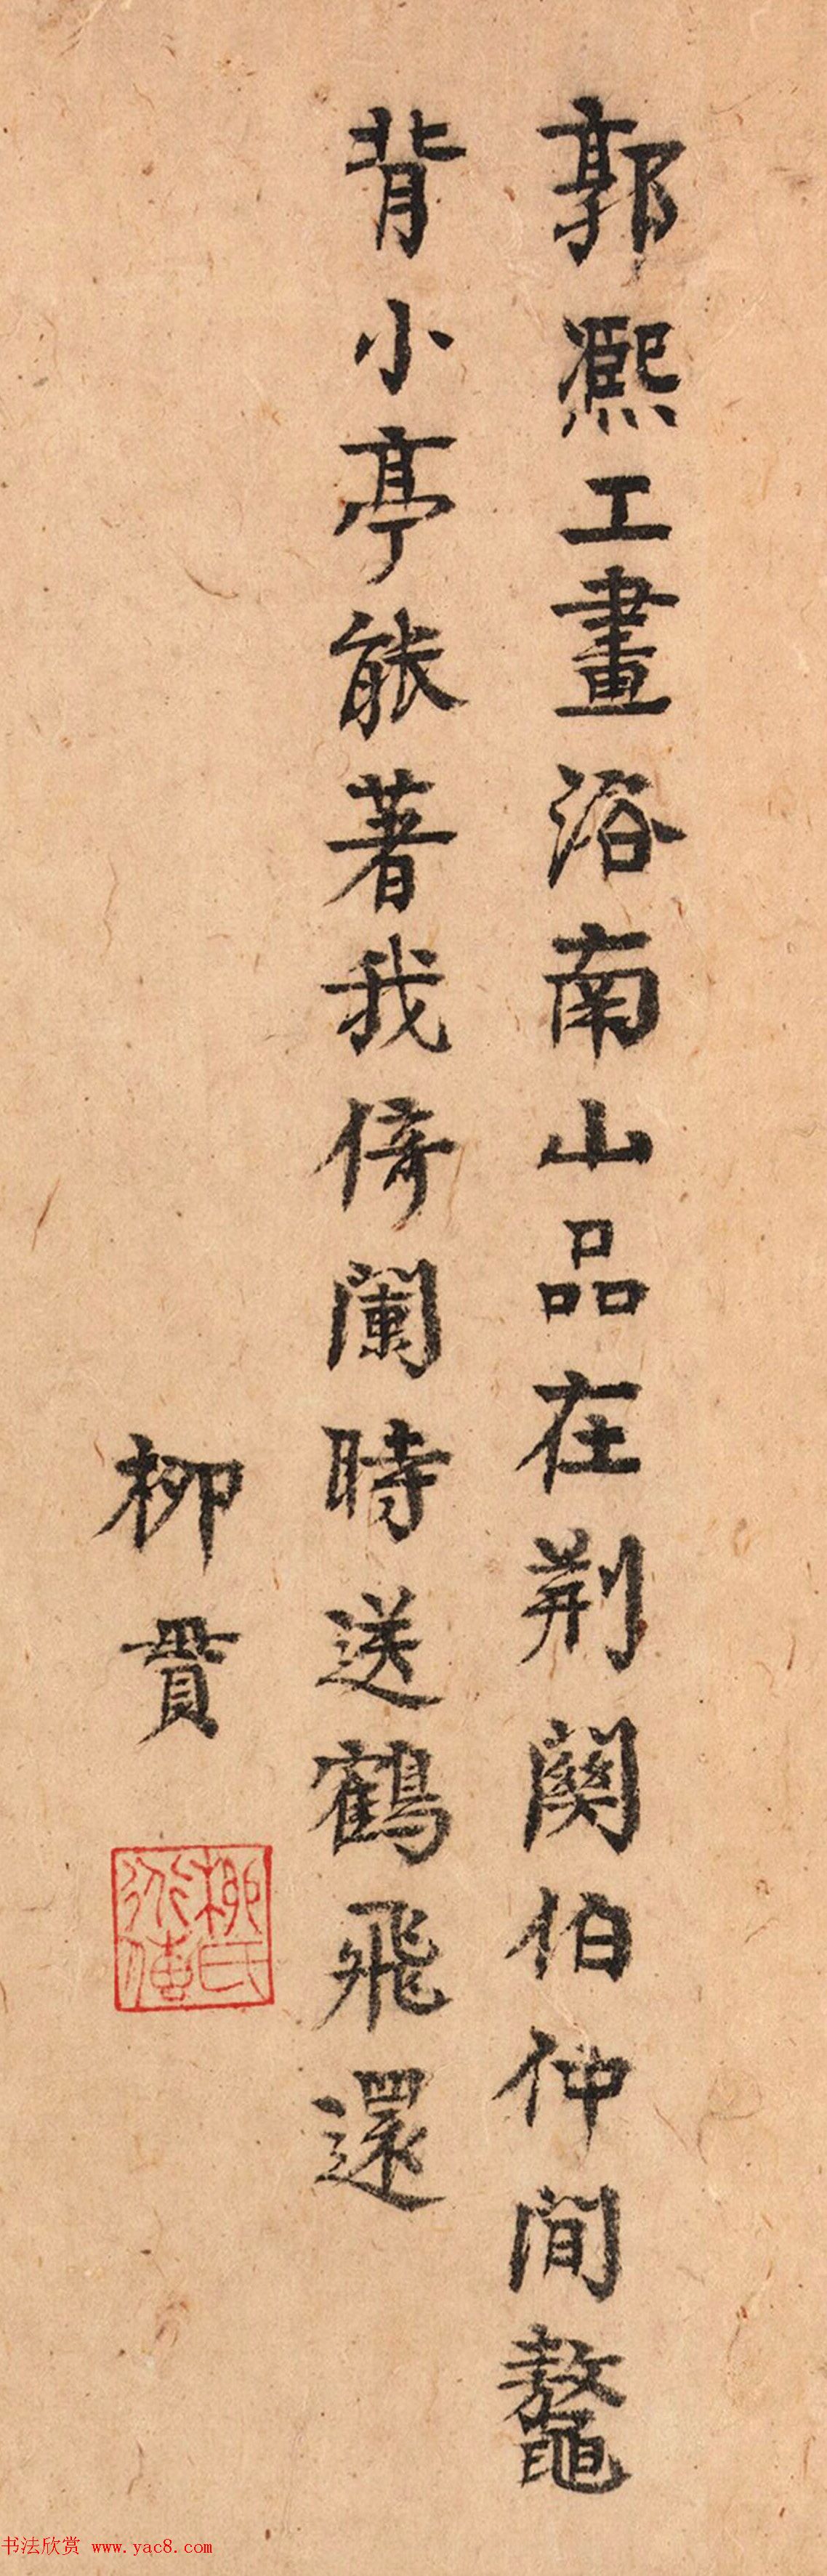 郭熙工畫洛南山品在荆関伯仲間鼇
背小亭能著我倚闌時送鶴飛還
柳貫
柳氏
書法欣赏 www.yac8.com